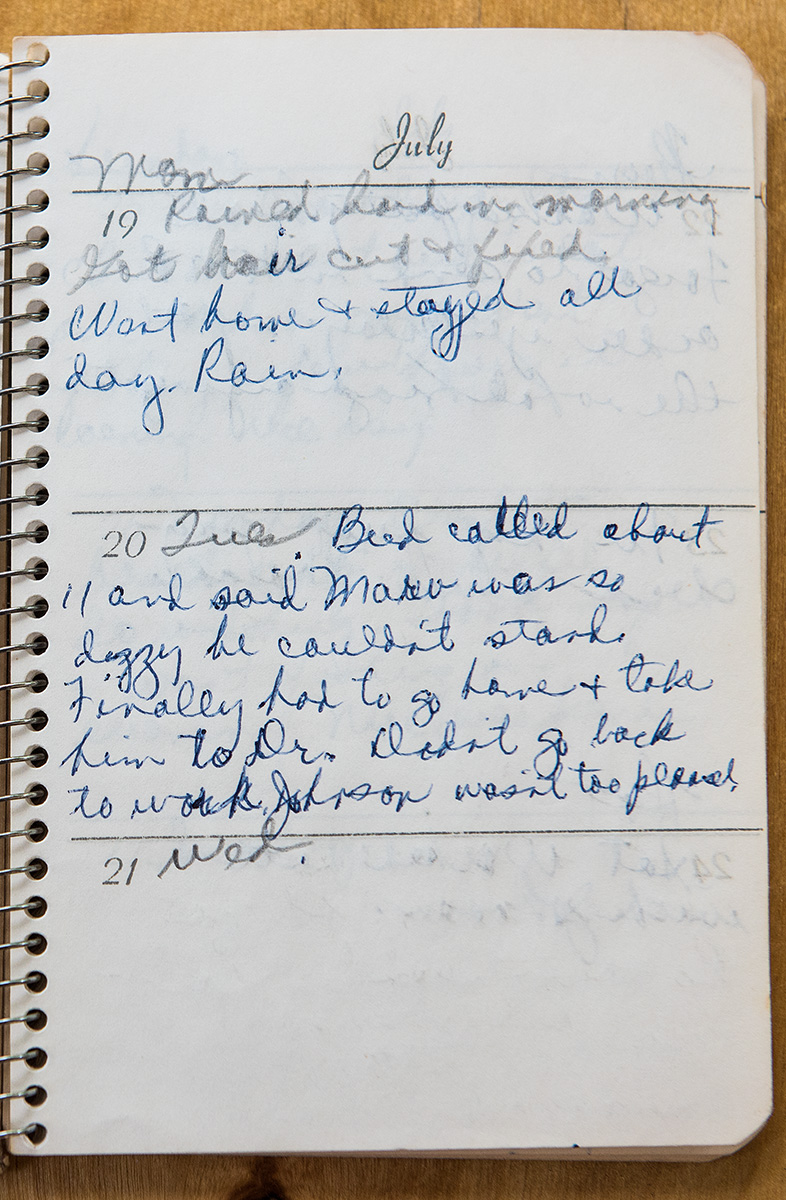 July
Mon
19 Rained hard in morning
Got hair cut & fixed.
Went home & stayed all
day. Rain.
20 Tues. Bud called about
11 and said Marv was so
dizzy he couldn't stand.
Finally had to go home & take
him to Dr. Didn't go back
to work. Johnson wasn't too pleased.
21 Wed.